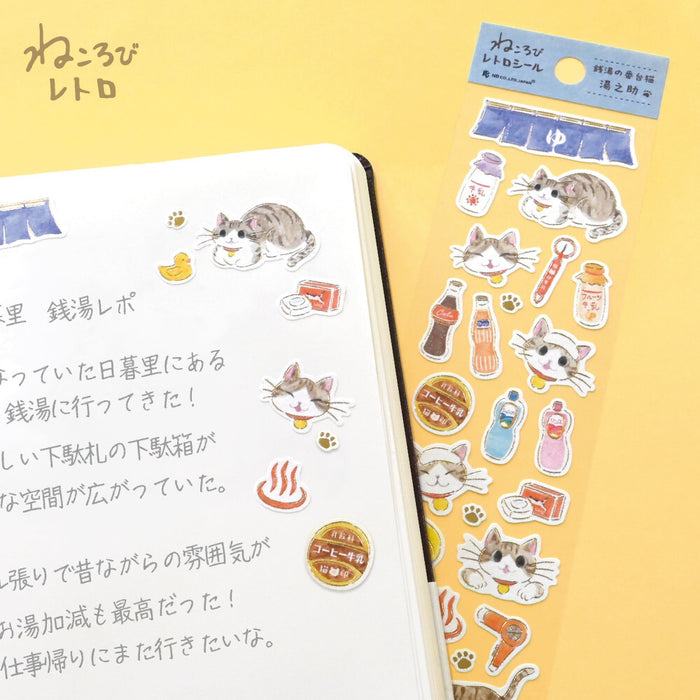 ねころび
レトロ
ねころび
レトロシール
ND CO.,LTD. JAPAN
銭湯の番台猫
湯之助
ゆ
牛乳
フルーツ
牛乳
Cola
コーヒー牛乳
猫印
里 銭湯レポ
なっていた日暮里にある
銭湯に行ってきた！
しい下駄札の下駄箱が
な空間が広がっていた。
ル張りで昔ながらの雰囲気が
お湯加減も最高だった！
仕事帰りにまた行きたいな。
コーヒー牛乳
猫印